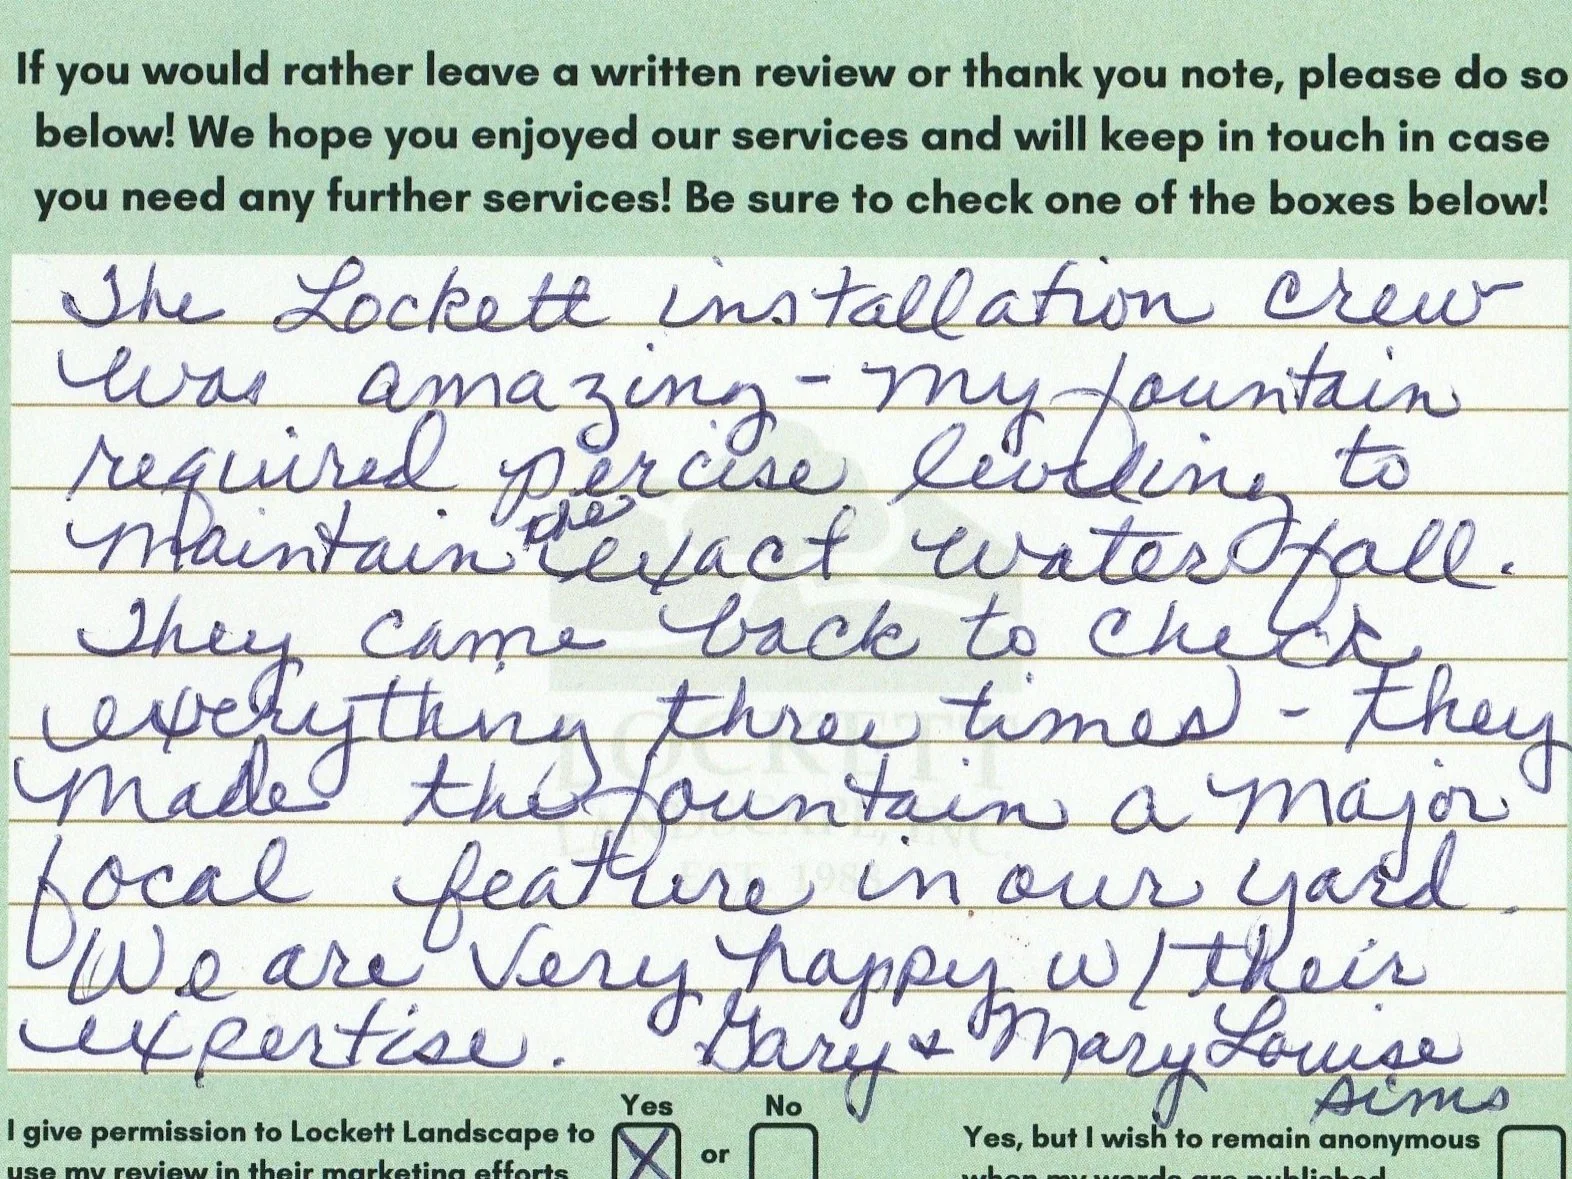 If you would rather leave a written review or thank you note, please do so
below! We hope you enjoyed our services and will keep in touch in case
you need any further services! Be sure to check one of the boxes below!
The Lockett installation crew
was amazing - my fountain
required percise leveling to
maintain the exact water fall.
They came back to check
everything three times - they
made the fountain a major
focal feature in our yard.
We are very happy w/ their
expertise. Gary & Mary Louise
Sims
Yes No
I give permission to Lockett Landscape to
use my review in their marketing efforts
X or
Yes, but I wish to remain anonymous
when my words are published
LOCKETT
LANDSCAPE, INC.
EST. 198